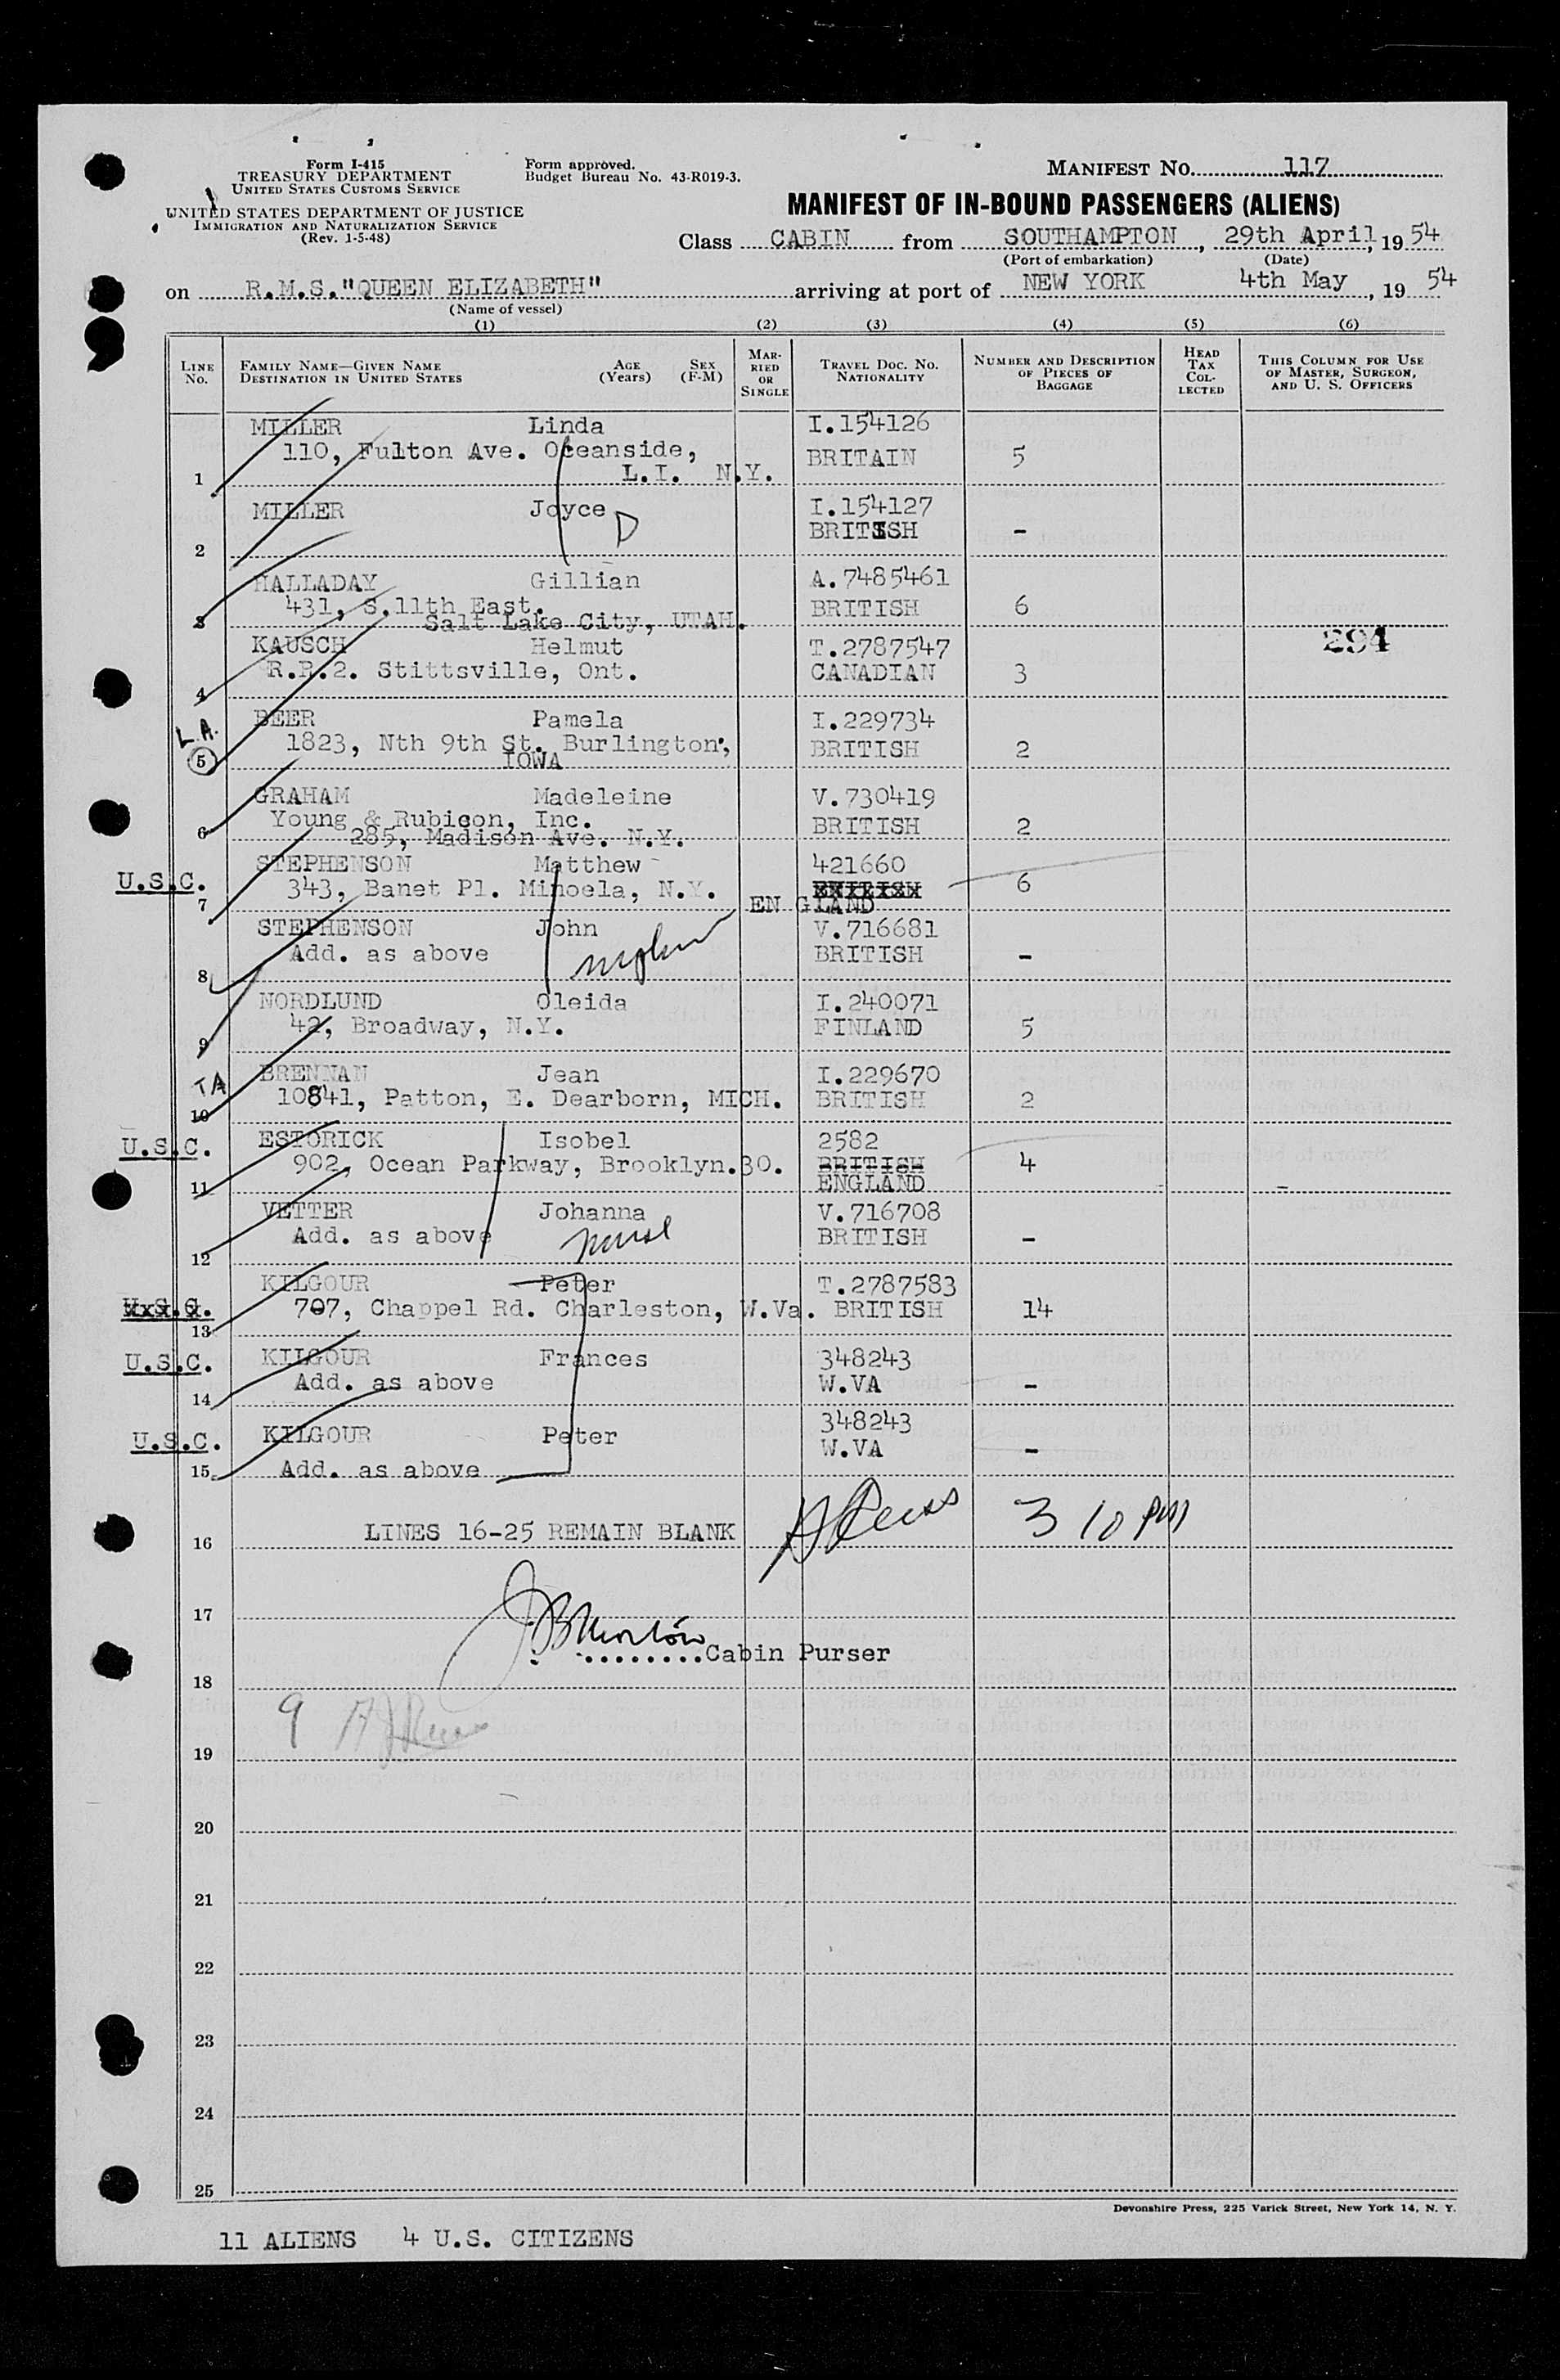 Form I-415
TREASURY DEPARTMENT
UNITED STATES CUSTOMS SERVICE
UNITED STATES DEPARTMENT OF JUSTICE
IMMIGRATION AND NATURALIZATION SERVICE
(Rev. 1-5-48)
Form approved.
Budget Bureau No. 43-R019-3.
MANIFEST NO. 117
MANIFEST OF IN-BOUND PASSENGERS (ALIENS)
Class CABIN from SOUTHAMPTON, 29th April, 1954
(Port of embarkation) (Date)
on R.M.S."QUEEN ELIZABETH" arriving at port of NEW YORK 4th May, 19 54
(Name of vessel)
(1) (2) (3) (4) (5) (6)
LINE NO. FAMILY NAME—GIVEN NAME DESTINATION IN UNITED STATES AGE (Years) SEX (F-M) MARRIED OR SINGLE TRAVEL DOC. NO. NATIONALITY NUMBER AND DESCRIPTION OF PIECES OF BAGGAGE HEAD TAX COLLECTED THIS COLUMN FOR USE OF MASTER, SURGEON, AND U. S. OFFICERS
MILLER Linda I.154126
110, Fulton Ave. Oceanside, BRITAIN 5
1 L.I. N.Y.
MILLER Joyce D I.154127
2 BRITISH -
HALLADAY Gillian A.7485461
431, S.11th East. BRITISH 6
3 Salt Lake City, UTAH.
KAUSCH Helmut T.2787547 294
4 R.R.2. Stittsville, Ont. CANADIAN 3
L.A. BEER Pamela I.229734
5 1823, Nth 9th St. Burlington, BRITISH 2
IOWA
GRAHAM Madeleine V.730419
Young & Rubicon, Inc. BRITISH 2
6 285, Madison Ave. N.Y.
U.S.C. STEPHENSON Matthew 421660
7 343, Banet Pl. Minoela, N.Y. BRITISH 6
ENGLAND
STEPHENSON John V.716681
8 Add. as above nephew BRITISH -
NORDLUND Oleida I.240071
9 42, Broadway, N.Y. FINLAND 5
TA BRENNAN Jean I.229670
10 10841, Patton, E. Dearborn, MICH. BRITISH 2
U.S.C. ESTORICK Isobel 2582
11 902, Ocean Parkway, Brooklyn.30. BRITISH 4
ENGLAND
VETTER Johanna V.716708
12 Add. as above nurse BRITISH -
KILGOUR Peter T.2787583
U.S.C. 13 707, Chappel Rd. Charleston, W.Va. BRITISH 14
U.S.C. KILGOUR Frances 348243
14 Add. as above W.VA -
U.S.C. KILGOUR Peter 348243
15 Add. as above W.VA -
16 LINES 16-25 REMAIN BLANK 3 10 pm
17
........Cabin Purser
18
9
19
20
21
22
23
24
25
Devonshire Press, 225 Varick Street, New York 14, N. Y.
11 ALIENS 4 U.S. CITIZENS